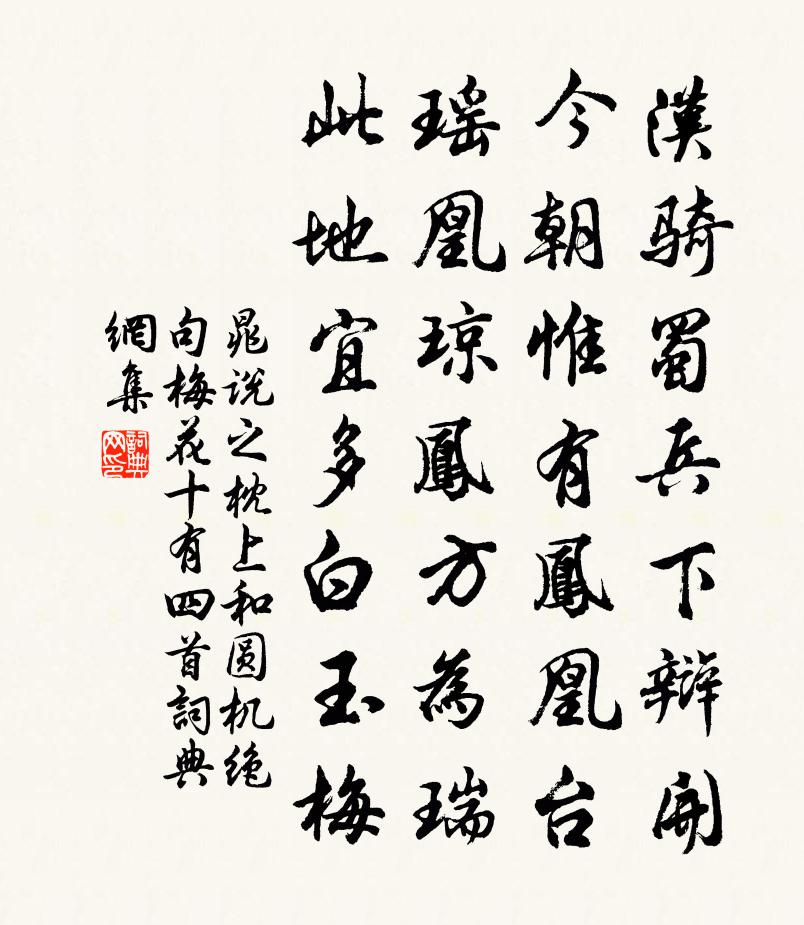 漢骑蜀兵下辩開
今朝惟有鳳凰台
瑶凰琼鳳方為瑞
此地宜多白玉梅
晁说之枕上和圆机绝
句梅花十有四首詞典
網集
詞典
网印